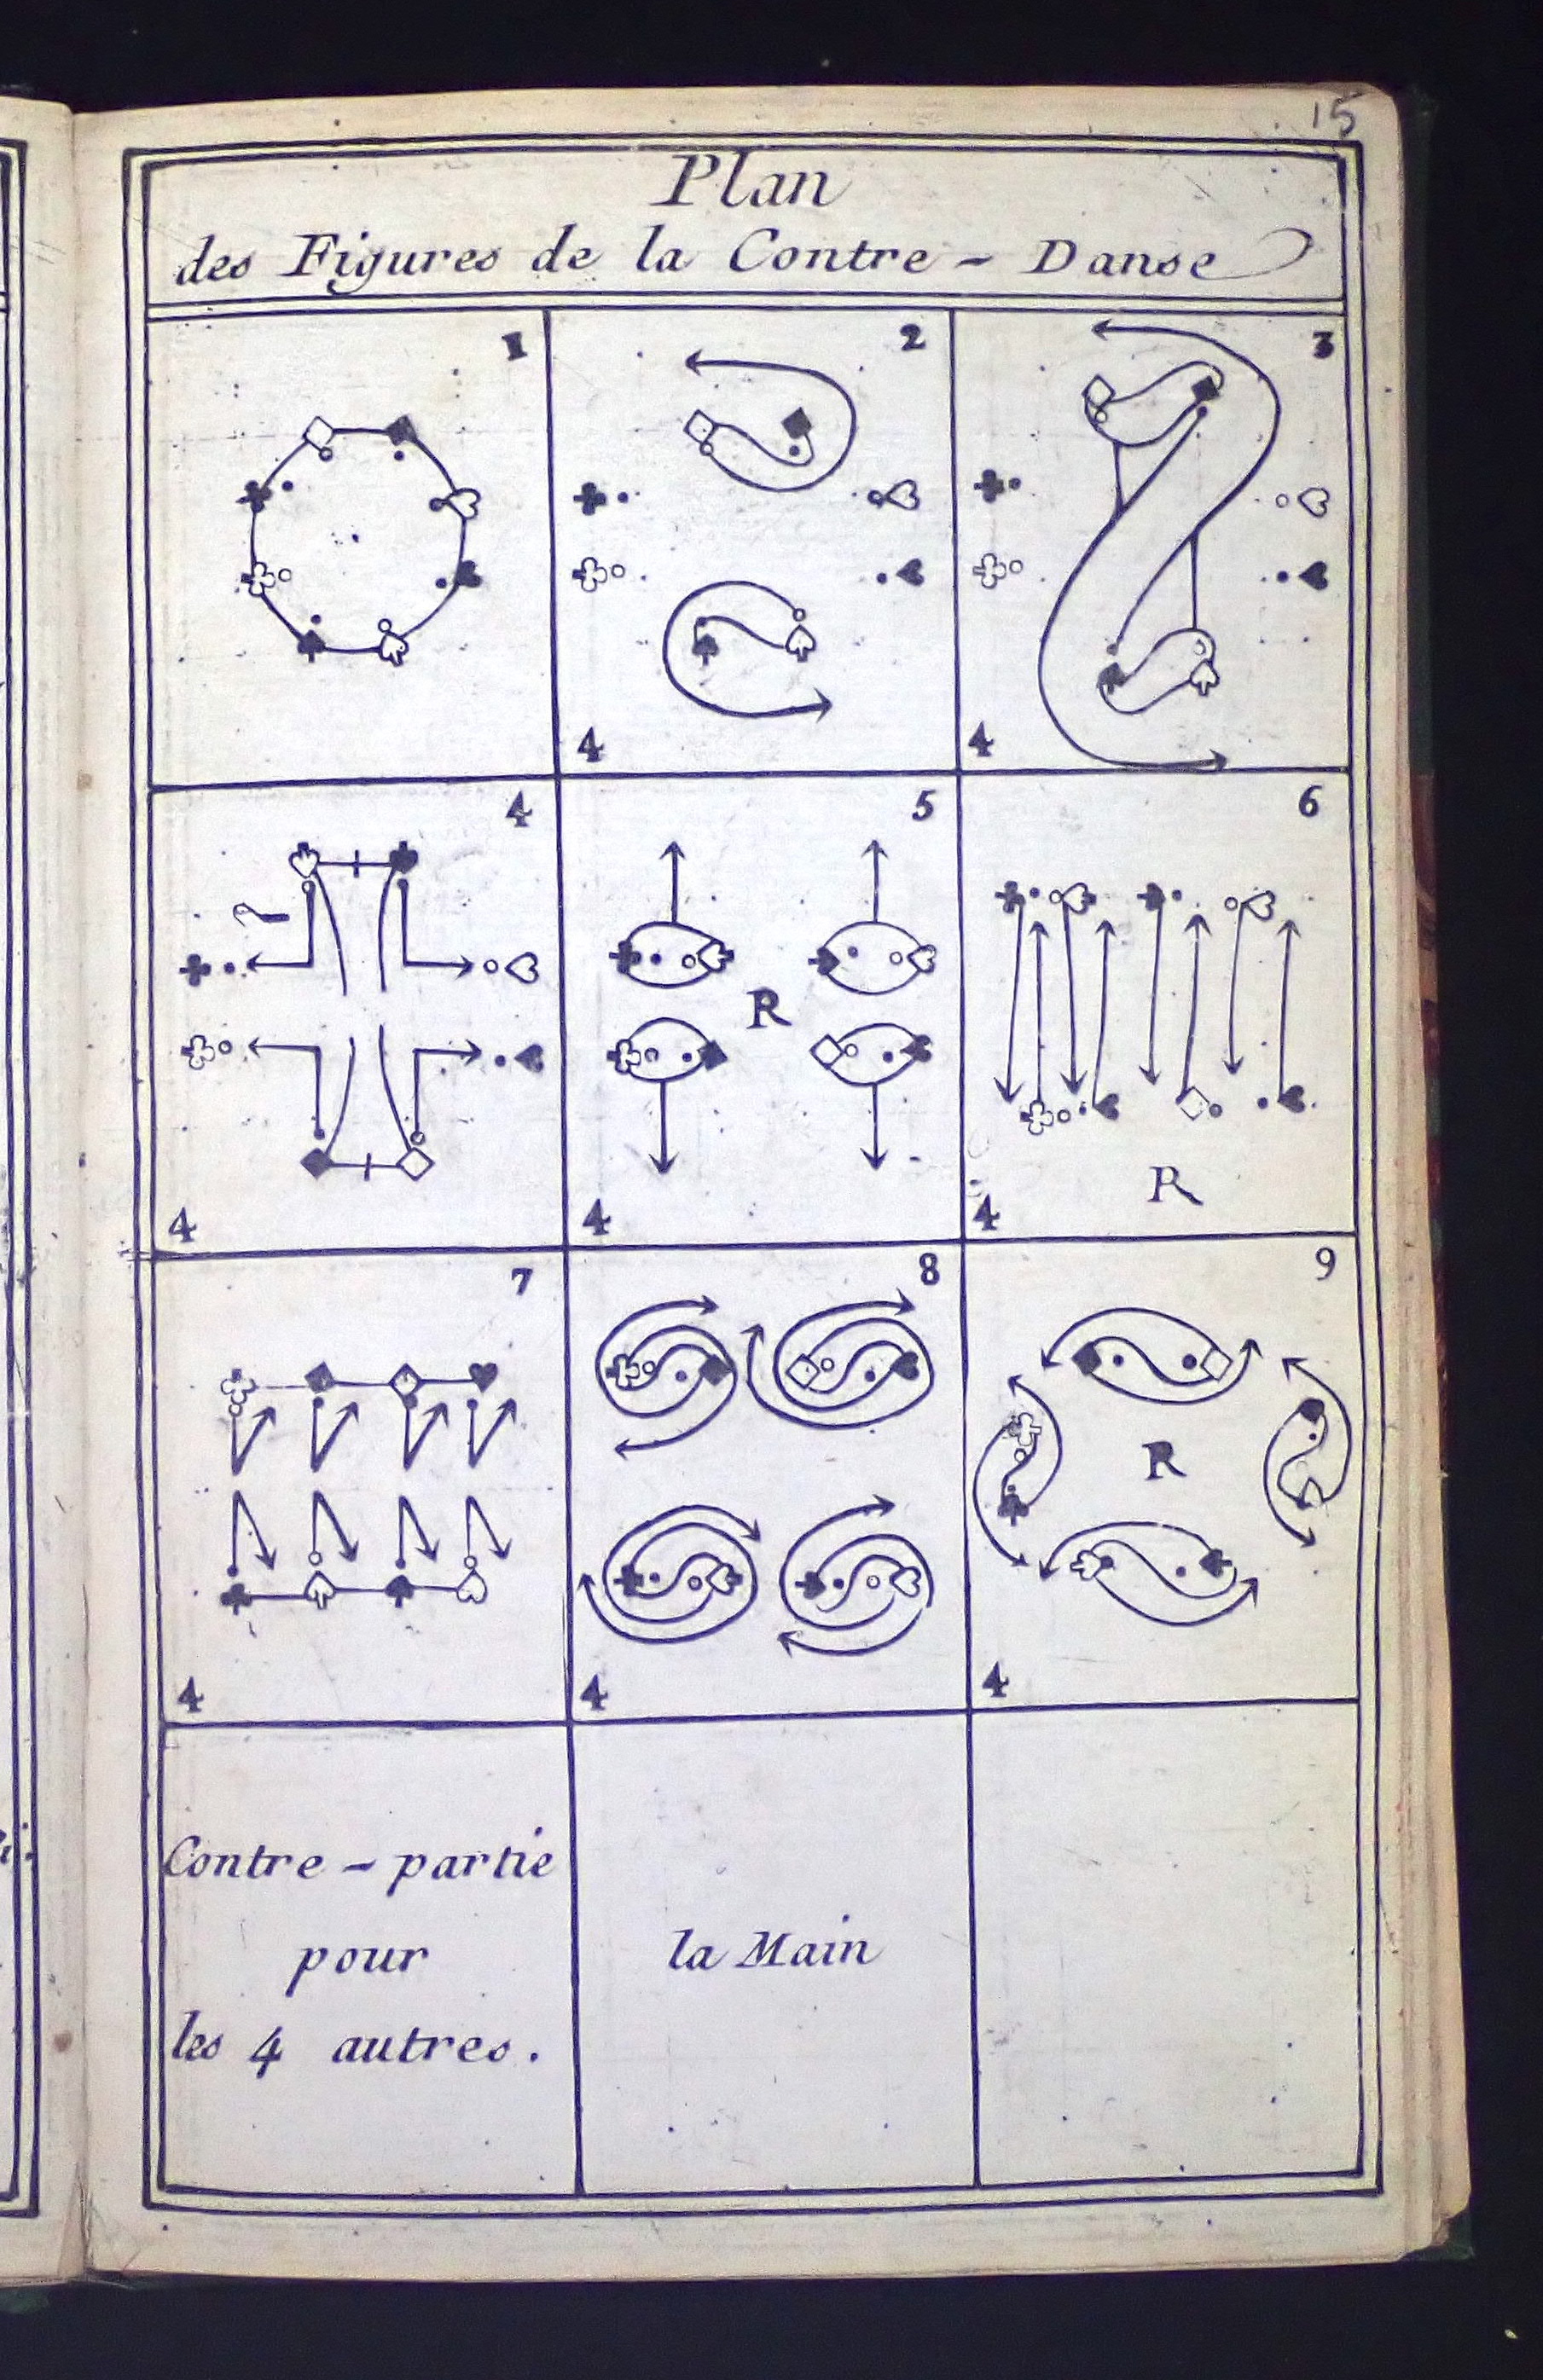 15
Plan
des Figures de la Contre - Danse
1
2
3
4
4
4
5
6
R
R
4
4
4
7
8
9
R
4
4
4
Contre - partie
pour
les 4 autres.
la Main